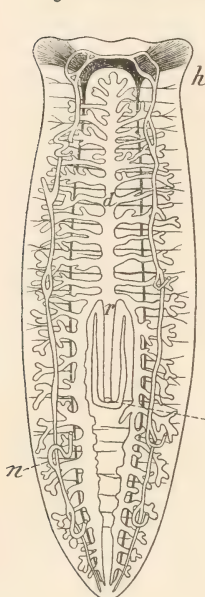 h
d
r
n